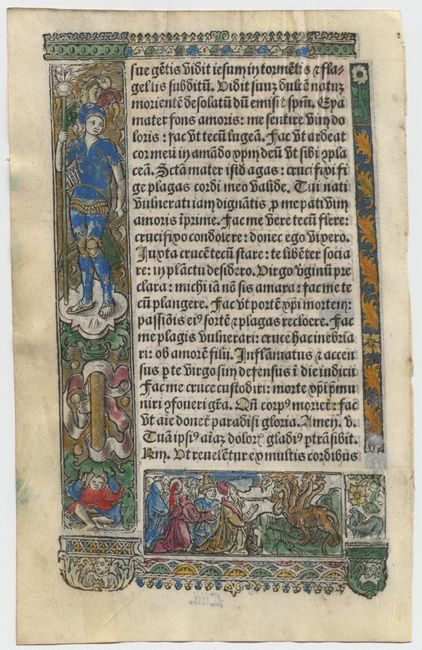 sue gētis vidit iesum in tormētis ⁊ fla-
gellis subditū. Vidit suuz dulcē natuz
moriente desolatū dū emisit spm̄. Eya
mater fons amoris: me sentire vim do
loris: fac vt tecū lugeā. Fac vt ardeat
cor meū in amādo xp̄m deū vt sibi ꝯpla
ceā. Sctā mater istd agas: crucifixi fi
ge plagas cordi meo valide. Tui nati
vulnerati iam dignatis ꝓ me pati vim
amoris īprime. Fac me vere tecū flere:
crucifixo condolere: donec ego vixero.
Juxta crucē tecū stare: te libēter socia
re: in plāctu desidero. Virgo vginū pre
clara: michi iā nō sis amara: fac me te
cū plangere. Fac vt portē xp̄i mortem:
passiōis eiꝰ sortē ⁊ plagas recloere. Fac
me plagis vulnerari: cruce hac inebria
ri: ob amorē filii. Inflāmatus ⁊ accen
sus p te virgo sim defensus ī die iudicii
Fac me cruce custodiri: morte xp̄i p̄mu
niri ⁊foveri gr̄a. Qn̄ corpꝰ moriet: fac
vt aīe donet paradisi gloria. Amen. v.
Tuā ipsiꝰ aīaz dolorꝭ gladiꝰ ꝑtrāsibit.
vt revelētur ex multis cordibus